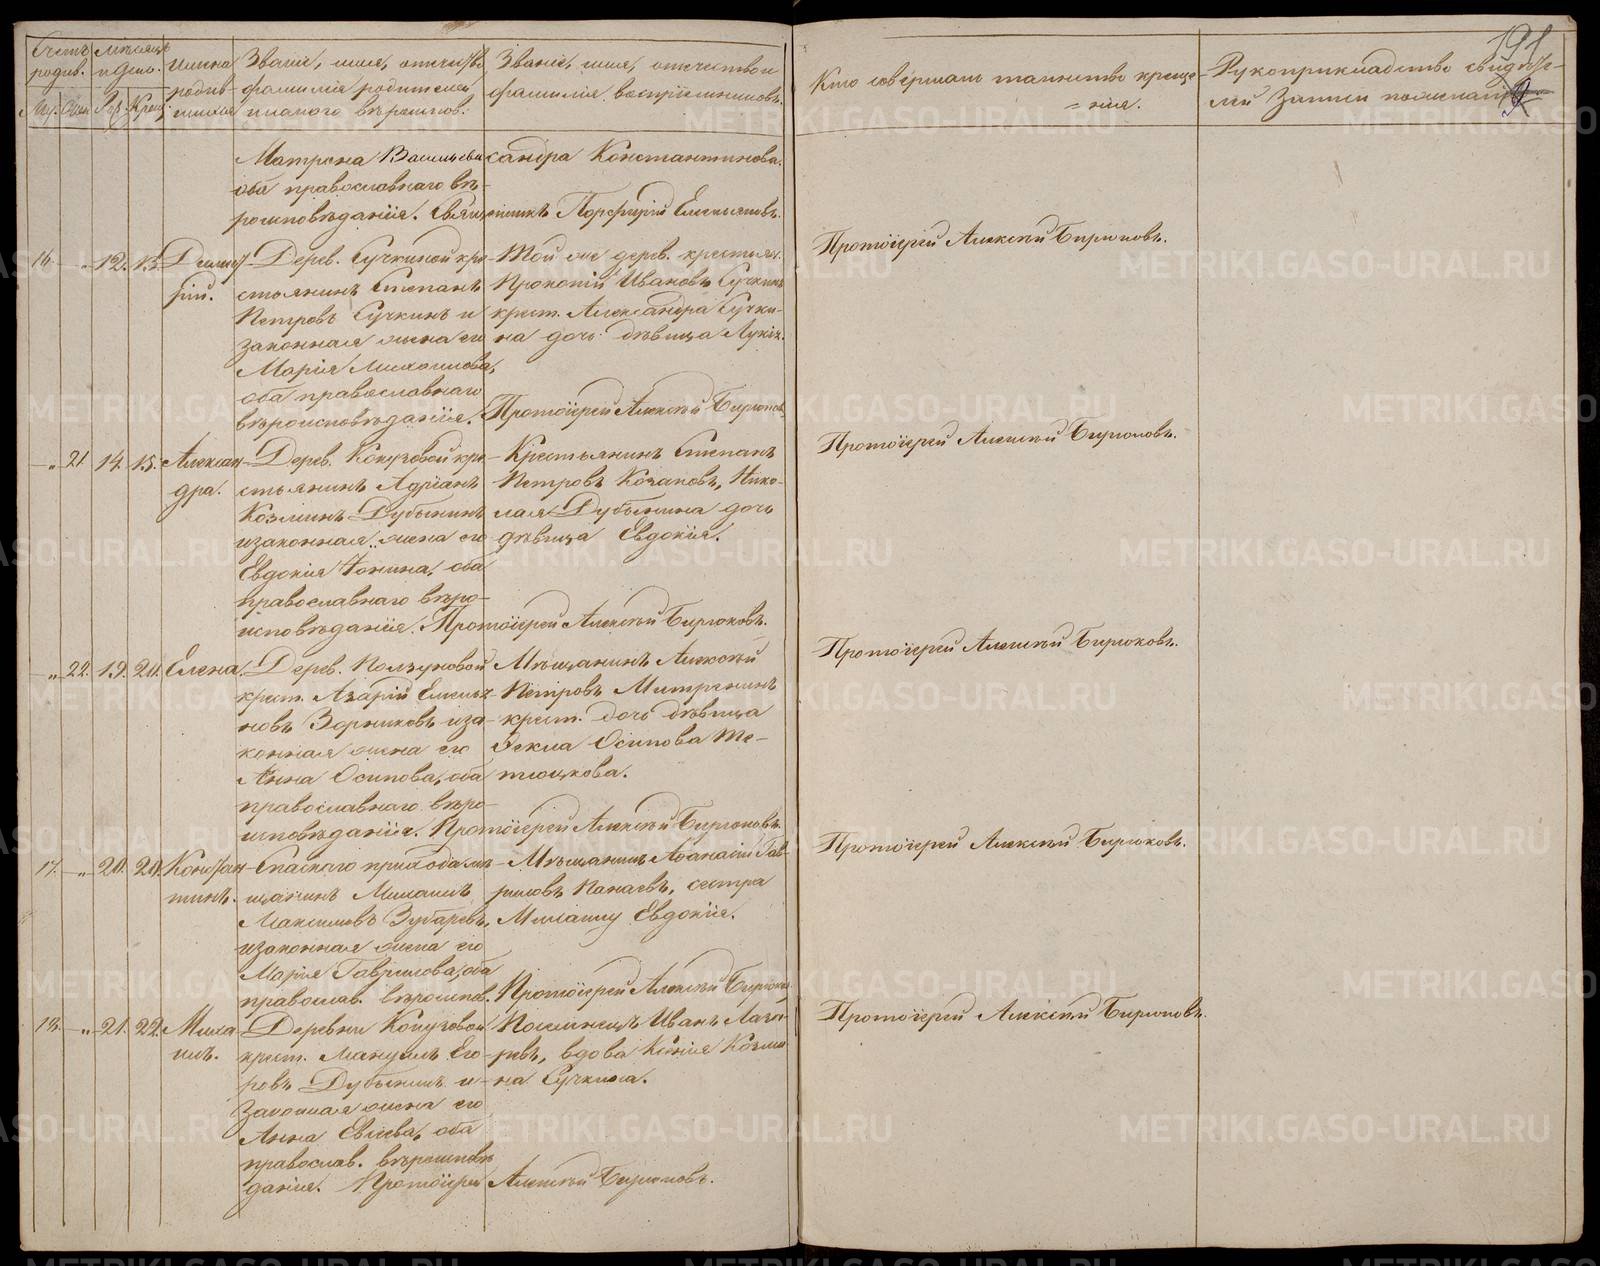 Счетъ родив.
Мѣсяцъ и день.
Имена родив-
шихся
Званіе, имя, отчество,
фамилія родителей
и какого вѣроиспов.
Званіе, имя, отчество и
фамилія воспріемниковъ.
Кто совершалъ таинство креще-
= нія.
Рукоприкладство свидѣте-
лей записи по желанію
191
Муж. Жен. Рож. Крещ.
Матрона Васильева
оба православнаго вѣ-
роисповѣданія.
сандра Константинова.
Священникъ Порфирій Емельяновъ.
16. — „ 12. 13. Димит-
рій.
Дерев. Сучкиной кре-
стьянинъ Степанъ
Петровъ Сучкинъ и
законная жена его
Марія Михаилова,
оба православнаго
вѣроисповѣданія.
Той же дерев. крестьян.
Прокопій Ивановъ Сучкинъ
крест. Александра Сучки-
на дочь дѣвица Лукія.
Протоіерей Алексѣй Бирюковъ.
Протоіерей Алексѣй Бирюковъ.
— „ 21. 14. 15. Алексан-
дра.
Дерев. Кокузовой кре-
стьянинъ Адріанъ
Козминъ Дубынинъ
и законная жена его
Евдокія Іонина, оба
православнаго вѣро-
исповѣданія.
Крестьянинъ Степанъ
Петровъ Казаковъ, Нико-
лая Дубынина дочь
дѣвица Евдокія.
Протоіерей Алексѣй Бирюковъ.
Протоіерей Алексѣй Бирюковъ.
— „ 22. 19. 20. Елена.
Дерев. Ползуновой
крест. Азарій Емелья-
новъ Зорниковъ и за-
конная жена его
Анна Осипова, оба
православнаго вѣро-
исповѣданія.
Мѣщанинъ Алексѣй
Петровъ Митренинъ
крест. дочь дѣвица
Ѳекла Осипова Те-
тюцкова.
Протоіерей Алексѣй Бирюковъ.
Протоіерей Алексѣй Бирюковъ.
17. — „ 20. 20. Констан-
тинъ.
Спаскаго прихода мѣ-
щанинъ Михаилъ
Максимовъ Зубаревъ,
и законная жена его
Марія Гаврилова, оба
православ. вѣроиспов.
Мѣщанинъ Аѳанасій Гав-
риловъ Панаевъ, сестра
Михаилу Евдокія.
Протоіерей Алексѣй Бирюковъ
Протоіерей Алексѣй Бирюковъ.
18. — „ 21. 22. Миха-
илъ.
Деревни Кокузовой
крест. Мануилъ Его-
ровъ Дубынинъ и
законная жена его
Анна Евсіева, оба
православ. вѣроисповѣ
данія.
Поселенецъ Иванъ Лаза-
ревъ, вдова Ксенія Козми-
на Сучкина.
Протоіерей Алексѣй Бирюковъ.
Протоіерей Алексѣй Бирюковъ.
METRIKI.GASO-URAL.RU